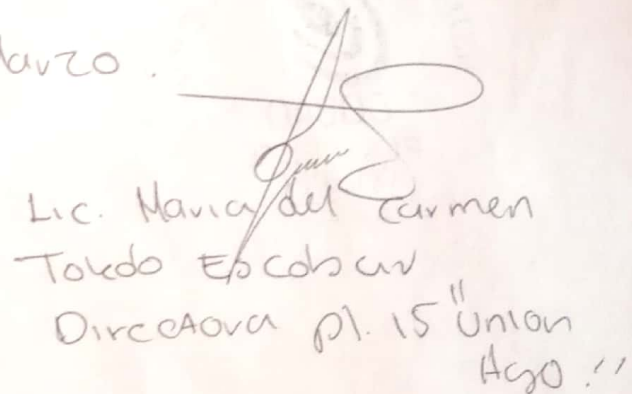 Marzo.
Lic. Maria del Carmen
Toledo Escobar
Directora pl. 15 "Union
Ago."